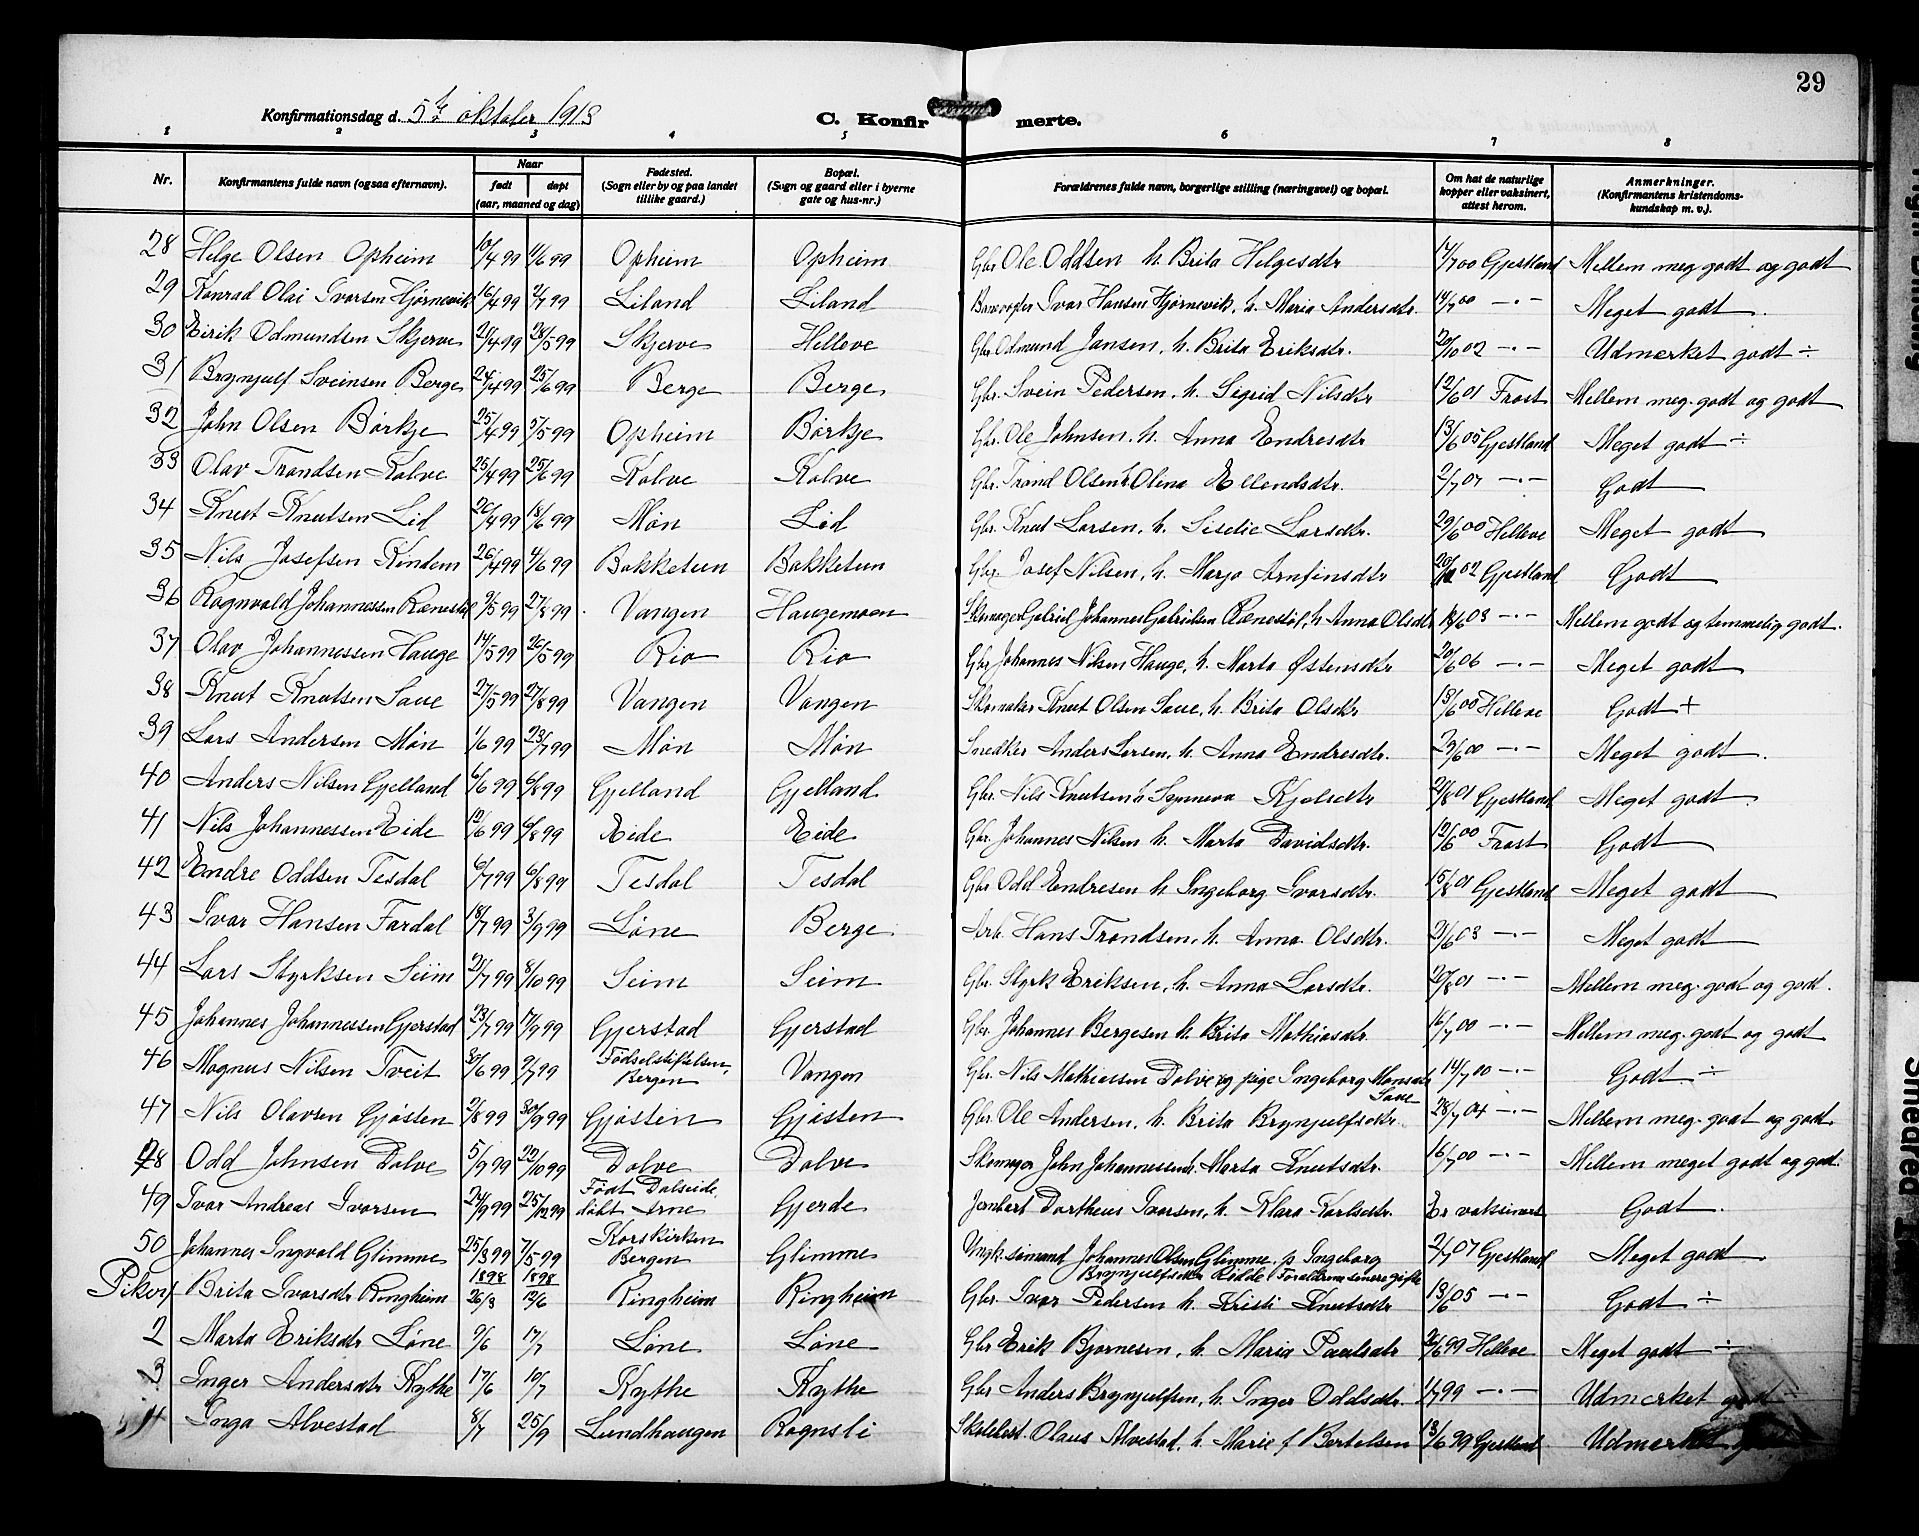 29
Konfirmationsdag d. 5te oktober 1913
C. Konfirmerte.
1 2 3 4 5 6 7 8
Nr. Konfirmantens fulde navn (ogsaa efternavn). Naar født døpt (aar, maaned og dag) Fødested. (Sogn eller by og paa landet tillike gaard.) Bopæl. (Sogn og gaard eller i byerne gate og hus-nr.) Forældrenes fulde navn, borgerlige stilling (næringsvei) og bopæl. Om hat de naturlige kopper eller vaksinert, attest herom. Anmerkninger. (Konfirmantens kristendomskundskap m. v.).
28 Helge Olsen Opheim 10/4 99 11/6 99 Opheim Opheim Gbr. Ole Oddsen h. Brita Helgesdtr 17/7 00 Gjestland Mellem meg godt og godt
29 Konrad Olai Ivarsen Hjørnevik 16/4 99 2/7 99 Liland Liland Ivar Hansen Hjørnevik, h. Maria Andersdtr. 14/7 00 -"- Meget godt.
30 Eirik Odmundsen Skjerve 21/4 99 28/5 99 Skjerve Helleve Gbr. Odmund Jansen, h. Brita Eriksdtr. 20/10 02 -"- Udmerket godt ÷
31 Brynjulf Sveinsen Berge 24/4 99 25/6 99 Berge Berge Gbr. Svein Pedersen, h. Sigrid Nilsdtr 12/6 01 Frost Mellem meg. godt og godt
32 John Olsen Børkje 25/4 99 5/5 99 Opheim Børkje Gbr. Ole Johnsen, h. Anna Endresdtr 13/6 05 Gjestland Meget godt ÷
33 Olav Trondsen Kolve 25/4 99 25/6 99 Kolve Kolve Gbr. Trond Olsen h. Olena Ellendsdtr. 2/7 07 -"- Godt
34 Knut Knutsen Lid 26/4 99 18/6 99 Møn Lid Gbr. Knut Larsen, h. Siselie Larsdtr. 29/6 00 Helleve Meget godt
35 Nils Josefsen Kindem 26/4 99 4/6 99 Bakketun Bakketun Gbr. Josef Nilsen, h. Marjo Arnfinsdtr 02 Gjestland Godt
36 Ragnvald Johannessen Rænestøl 9/5 99 27/8 99 Vangen Haugemoen Skomager Gabriel Johannes Gabrielsen Rænestøl, h. Anna Olsdtr 18/6 03 -"- Mellem godt og temmelig godt.
37 Olav Johannessen Hauge 14/5 99 26/5 99 Rio Rio Gbr Johannes Nilsen Hauge, h. Marta Østensdtr 20/6 06 -"- Meget godt
38 Knut Knutsen Saue 27/5 99 27/8 99 Vangen Vangen Skomaker Knut Olsen Saue, h. Brita Olsdtr 13/6 00 Helleve Godt +
39 Lars Andersen Møn 1/6 99 23/7 99 Møn Møn Snedker Anders Larsen, h. Anna Endresdtr. 29/6 00 -"- Meget godt.
40 Anders Nilsen Gjelland 6/6 99 6/8 99 Gjelland Gjelland Gbr. Nils Knutsen h. Synneva Kjelsdtr 21/8 01 Gjestland Meget godt
41 Nils Johannessen Eide 10/6 99 6/8 99 Eide Eide Gbr. Johannes Nilsen h. Marta Davidsdtr. 12/6 00 Frost Godt
42 Endre Oddsen Tesdal 6/7 99 6/8 99 Tesdal Tesdal Gbr Odd Endresen h Ingeborg Ivarsdtr. 15/8 01 Gjestland Meget godt
43 Ivar Hansen Fardal 18/7 99 3/9 99 Løne Berge Arb. Hans Trondsen, h. Anna Olsdtr. 21/6 03 -"- Meget godt
44 Lars Styrksen Seim 21/7 99 8/10 99 Seim Seim Gbr. Styrk Eriksen, h. Anna Larsdtr. 20/8 01 -"- Mellem meg. godt og godt.
45 Johannes Johannessen Gjerstad 23/7 99 17/9 99 Gjerstad Gjerstad Gbr. Johannes Bergesen h. Brita Mathiasdtr. 16/7 00 -"- Mellem meg. godt og godt
46 Magnus Nilsen Tveit 30/6 99 9/7 99 Fødselsstiftelsen, Bergen Vangen Gbr. Nils Mathiassen Dolve og pige Ingeborg Monsdtr Saue 14/7 00 -"- Godt ÷
47 Nils Olavsen Gjøsten 2/8 99 30/9 99 Gjøsten Gjøsten Gbr. Ole Andersen, h. Brita Brynjulfsdtr. 28/7 04 -"- Mellem meg. godt og godt.
48 Odd Johnsen Dolve 5/9 99 22/10 99 Dolve Dolve Skomager John Johannessen h. Marta Knutsdtr. 16/7 00 -"- Mellem meget godt og godt.
49 Ivar Andreas Ivarsen 24/9 99 25/12 99 Født Dalseide, døbt Arne Gjerde Jernbarb Dortheus Ivarsen, h. Klara Karlsdtr. Er vaksinert Godt.
50 Johannes Ingvald Glimme 25/3 99 7/5 99 Korskirken Bergen Glimme Ungk. sømand Johannes Olsen Glimme. p Ingeborg Brynjulfsdtr Kidde Forældrene senere gifte 2/7 07 Gjestland Meget godt
Piker 1898 1898
Brita Ivarsdtr Ringheim 26/3 12/6 Ringheim Ringheim Gbr. Ivar Pedersen h. Kristi Knutsdtr 13/6 05 -"- Godt ÷
2 Marta Eriksdtr Løne 9/6 17/7 Løne Løne Gbr Erik Bjørnesen, h. Maria Paulsdtr 26/6 99 Helleve Meget godt ÷
3 Inger Andersdtr Rythe 17/6 10/7 Rythe Rythe Gbr Anders Brynjulfsen, h. Inger Oddsdtr. 1/7 99 -"- Udmerket godt ÷
4 Inga Alvestad 8/7 25/9 Lundhaugen Rognsli Skolebest. Olaus Alvestad, h. Marie f Bertelsen 13/6 99 Gjestland Udmerket